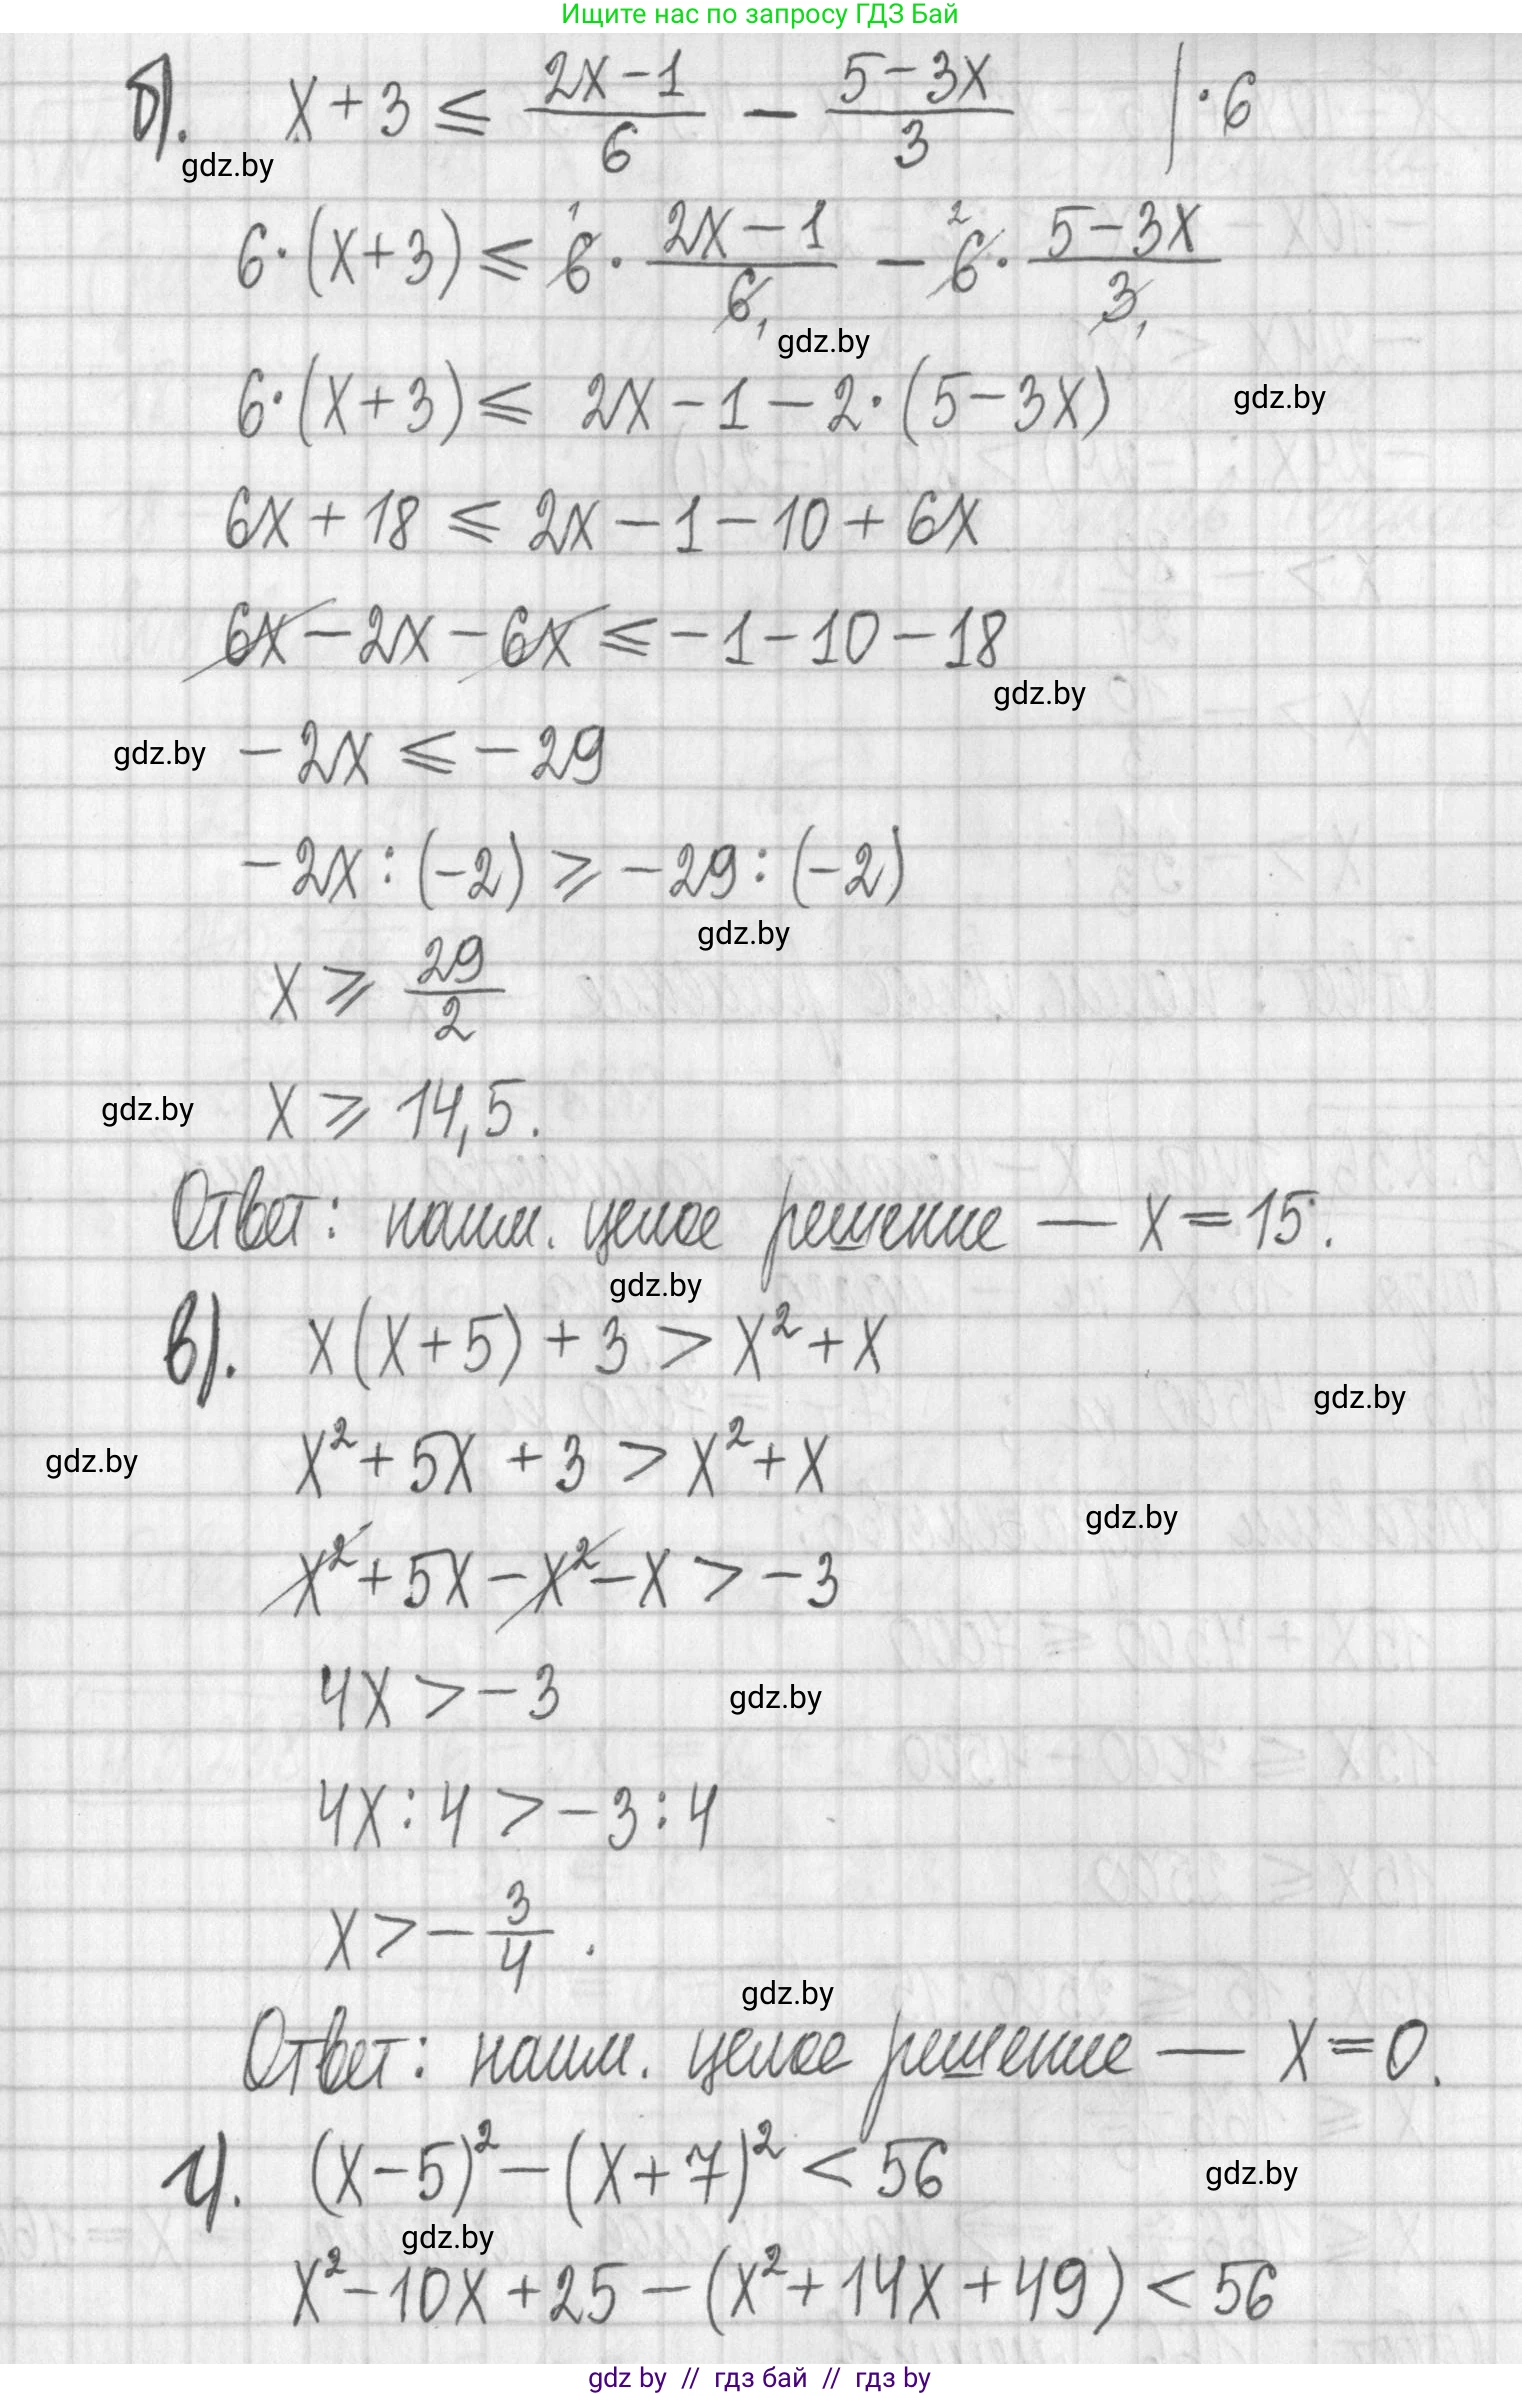 Ищите нас по запросу ГДЗ Бай
б). x + 3 ≤ (2x − 1)/6 − (5 − 3x)/3 | · 6
gdz.by
6 · (x + 3) ≤ 6¹ · (2x − 1)/6₁ − 6² · (5 − 3x)/3₁
gdz.by
6 · (x + 3) ≤ 2x − 1 − 2 · (5 − 3x)
gdz.by
6x + 18 ≤ 2x − 1 − 10 + 6x
6x − 2x − 6x ≤ −1 − 10 − 18
gdz.by
gdz.by
−2x ≤ −29
−2x : (−2) ≥ −29 : (−2)
gdz.by
x ≥ 29/2
gdz.by
x ≥ 14,5.
Ответ: наим. целое решение — x = 15.
gdz.by
в). x(x + 5) + 3 > x² + x
gdz.by
x² + 5x + 3 > x² + x
gdz.by
gdz.by
x² + 5x − x² − x > −3
4x > −3
gdz.by
4x : 4 > −3 : 4
x > −3/4.
gdz.by
Ответ: наим. целое решение — x = 0.
г). (x − 5)² − (x + 7)² < 56
gdz.by
gdz.by
x² − 10x + 25 − (x² + 14x + 49) < 56
gdz by // гдз бай // гдз by